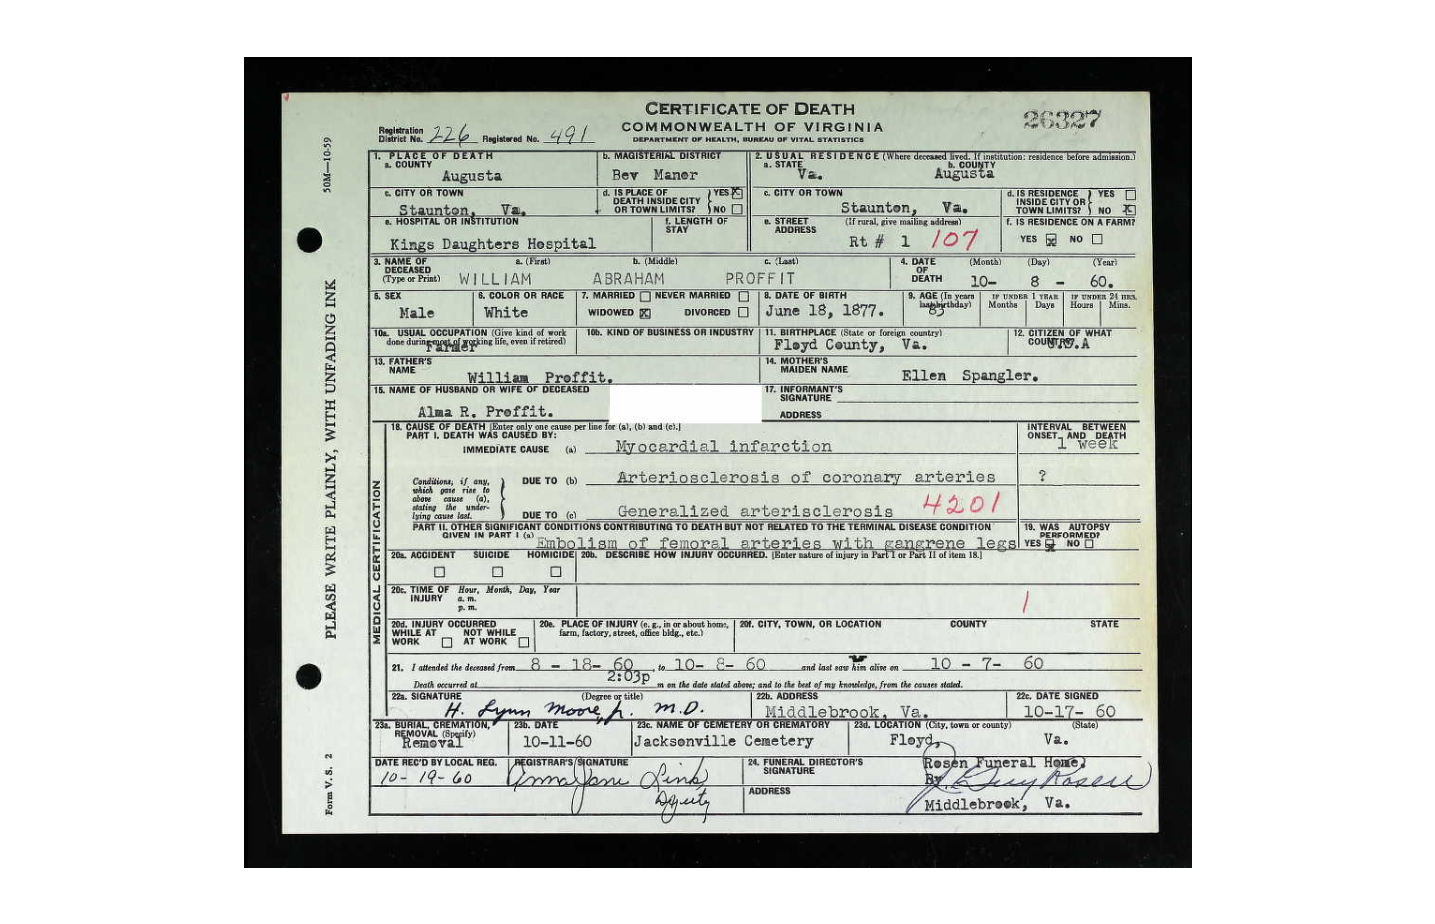 CERTIFICATE OF DEATH
COMMONWEALTH OF VIRGINIA
DEPARTMENT OF HEALTH, BUREAU OF VITAL STATISTICS
26327
Registration District No. 226 Registered No. 491
50M—10-59
PLEASE WRITE PLAINLY, WITH UNFADING INK
Form V. S. 2
1. PLACE OF DEATH
a. COUNTY
Augusta
b. MAGISTERIAL DISTRICT
Bev Manor
2. USUAL RESIDENCE (Where deceased lived. If institution: residence before admission.)
a. STATE
Va.
b. COUNTY
Augusta
c. CITY OR TOWN
Staunton, Va.
d. IS PLACE OF DEATH INSIDE CITY OR TOWN LIMITS? YES NO
c. CITY OR TOWN
Staunton, Va.
d. IS RESIDENCE INSIDE CITY OR TOWN LIMITS? YES NO
e. HOSPITAL OR INSTITUTION
Kings Daughters Hospital
f. LENGTH OF STAY
e. STREET ADDRESS
(If rural, give mailing address)
Rt # 1 107
f. IS RESIDENCE ON A FARM?
YES NO
3. NAME OF DECEASED (Type or Print)
a. (First) b. (Middle) c. (Last)
WILLIAM ABRAHAM PROFFIT
4. DATE OF DEATH
(Month) (Day) (Year)
10- 8 - 60.
5. SEX
Male
6. COLOR OR RACE
White
7. MARRIED NEVER MARRIED
WIDOWED DIVORCED
8. DATE OF BIRTH
June 18, 1877.
9. AGE (In years last birthday)
83
IF UNDER 1 YEAR
Months Days
IF UNDER 24 HRS.
Hours Mins.
10a. USUAL OCCUPATION (Give kind of work done during most of working life, even if retired)
Farmer
10b. KIND OF BUSINESS OR INDUSTRY
11. BIRTHPLACE (State or foreign country)
Floyd County, Va.
12. CITIZEN OF WHAT COUNTRY?
U.S.A
13. FATHER'S NAME
William Proffit.
14. MOTHER'S MAIDEN NAME
Ellen Spangler.
15. NAME OF HUSBAND OR WIFE OF DECEASED
Alma R. Proffit.
17. INFORMANT'S SIGNATURE
ADDRESS
MEDICAL CERTIFICATION
18. CAUSE OF DEATH [Enter only one cause per line for (a), (b) and (c).]
PART I. DEATH WAS CAUSED BY:
INTERVAL BETWEEN ONSET AND DEATH
IMMEDIATE CAUSE (a) Myocardial infarction
1 week
Conditions, if any, which gave rise to above cause (a), stating the underlying cause last.
DUE TO (b) Arteriosclerosis of coronary arteries
?
DUE TO (c) Generalized arterisclerosis 4201
PART II. OTHER SIGNIFICANT CONDITIONS CONTRIBUTING TO DEATH BUT NOT RELATED TO THE TERMINAL DISEASE CONDITION GIVEN IN PART I (a)
Embolism of femoral arteries with gangrene legs
19. WAS AUTOPSY PERFORMED?
YES NO
20a. ACCIDENT SUICIDE HOMICIDE
20b. DESCRIBE HOW INJURY OCCURRED. [Enter nature of injury in Part I or Part II of item 18.]
20c. TIME OF INJURY Hour, Month, Day, Year
a. m.
p. m.
1
20d. INJURY OCCURRED
WHILE AT WORK NOT WHILE AT WORK
20e. PLACE OF INJURY (e. g., in or about home, farm, factory, street, office bldg., etc.)
20f. CITY, TOWN, OR LOCATION COUNTY STATE
21. I attended the deceased from 8 - 18- 60, to 10- 8- 60 and last saw him alive on 10 - 7- 60
Death occurred at 2:03p m on the date stated above; and to the best of my knowledge, from the causes stated.
22a. SIGNATURE (Degree or title)
H. Lynn Moore, Jr. M.D.
22b. ADDRESS
Middlebrook, Va.
22c. DATE SIGNED
10-17- 60
23a. BURIAL, CREMATION, REMOVAL (Specify)
Removal
23b. DATE
10-11-60
23c. NAME OF CEMETERY OR CREMATORY
Jacksonville Cemetery
23d. LOCATION (City, town or county) (State)
Floyd, Va.
DATE REC'D BY LOCAL REG.
10-19-60
REGISTRAR'S SIGNATURE
Anna Jane Link
Deputy
24. FUNERAL DIRECTOR'S SIGNATURE
Rosen Funeral Home,
By
Guy Rosen
ADDRESS
Middlebrook, Va.